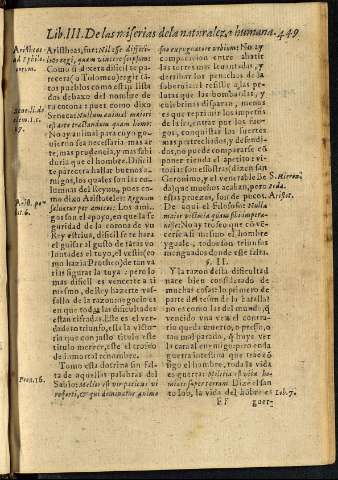 Lib. III. De las miserias de la naturaleza humana. 449
Aristheas
ad Philo-
Aristheas, fuè: Nil esse diffici-
lius regi, quam vincere seipsum.
Como si dixera dificil se pa-
recerà (o Tolomeo) regir tã-
tos pueblos como està lista-
dos debaxo del nombre de
rey
Seneca: Nullum animal maiori
est arte tractandum quam homo.
No ay animal para cuyo go-
uierno sea necessaria mas ar-
te, mas prudencia, y mas sabi-
duria que el hombre. Dificil
te parecerà hallar buenos a-
migos, los quales son las co-
lumnas del Rey
mo dixo Aristoteles: Regnum
saluatur per amicos. Los ami-
gos son el apoyo, en que la se-
guridad de la corona de vn
Rey estriua, dificil te harà
el guisar al gusto de tãtos vo-
luntades el tuyo, el vestir (co-
mo hazia Protheo) de tan va-
rias figuras la tuya: pero lo
mas dificil es vencerte a ti
mismo, de Rey hazerte vas-
sallo de la razon: negocio en
en que todas las dificultades
estan cifradas. Este es el ver-
dadero triunfo, esta la victo-
ria que con justo titulo este
titulo merece, este el trofeo
de inmortal renombre.
Tomo esta doctrina sin fal-
ta de aquellas palabras del
Prou. 16.
Sabio: Melior est vir patiens vi
ro forti, & qui dominatur animo
suo expugnatore urbium: No ay
comparacion entre abatir
las torres mas leuantadas, y
derribar los penachos de la
soberuia: el resistir a las pe-
lotas que las bombardas, y
culebrinas despiden, menos
es que reprimir los impetus
de la lengua: entrar por los
riscos, y conquistar las fuerças
mas pertrechadas, y defendi-
das, no puede compararse cõ
poner rienda al apetito: vi-
ctorias son ilustres (dizen san
S. Hieron.
Geronimo, y el venerable Be
Beda.
da) que muchos acaban, pero
estas proezas, son de pocos.
Aristot.
De aqui el Filosofo: Nulla
maior victoria quam
No ay trofeo que cõ ve-
cerse a si mesmo el hombre
yguale, todos son triunfos
menguados donde este falta.
§. II.
Y la razon desta dificultad
nace bien considerado de
muchas cosas: lo primero de
parte del teson de la batalla:
no es como las del mundo, q̃
venciendo vna vez el contra-
rio queda muerto, o preso, o
tan mal parado, q̃ huye ver
la cara al enemigo: pero en la
guerra intestina que trae cõ-
sigo el hombre, toda la vida
es vna guerra: Militia est vita ho-
minis super terram. Dize el san-
Iob. 7.
to Iob, la vida del hõbre es
Ff
guer-